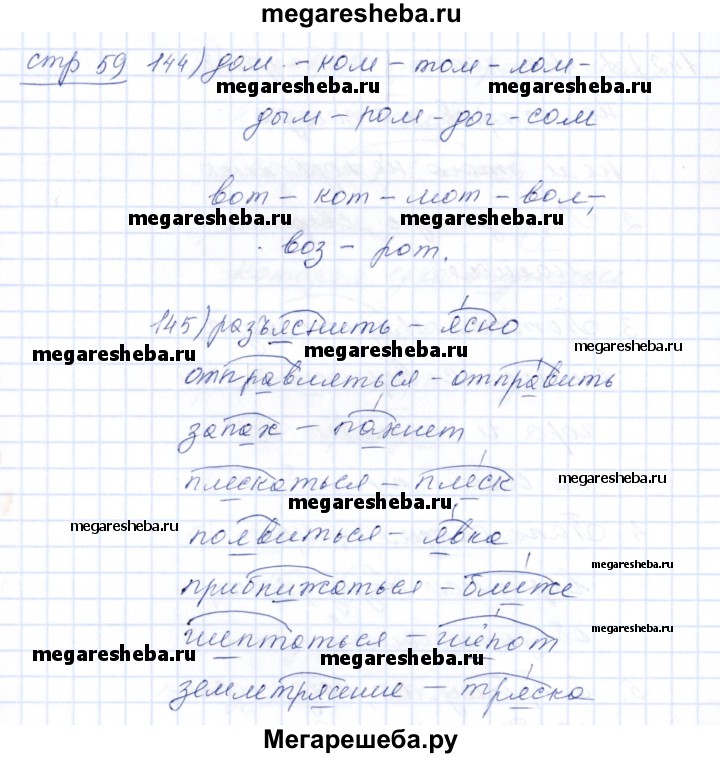 megaresheba.ru
стр 59 144) дом - ком - том - лом -
megaresheba.ru megaresheba.ru
дым - ром - дог - сом
вот - кот - мот - вол,
megaresheba.ru megaresheba.ru
воз - рот.
145) разъяснить - ясно
megaresheba.ru megaresheba.ru megaresheba.ru
отправляться - отправить
запах - пахнет
плескаться - плеск
megaresheba.ru
megaresheba.ru
megaresheba.ru
появиться - явка
megaresheba.ru
приближаться - ближе
megaresheba.ru
шептаться - шёпот
megaresheba.ru megaresheba.ru
землетрясение - тряска
Мегарешеба.ру